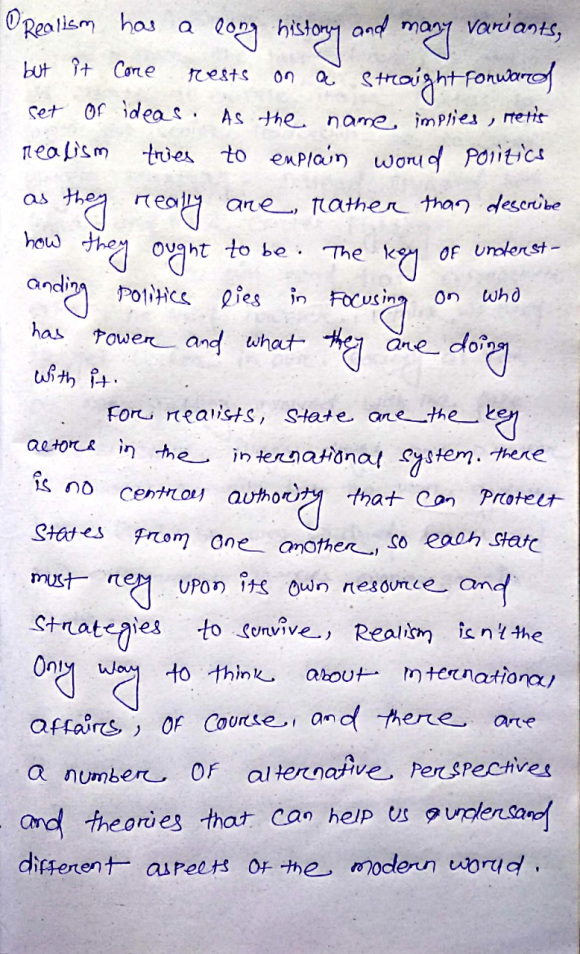 ① Realism has a long history and many variants,
but it core rests on a straightforward
set of ideas. As the name implies,
realism tries to explain world politics
as they really are, rather than describe
how they ought to be. The key of underst-
anding politics lies in focusing on who
has power and what they are doing
with it.
For realists, state are the key
actors in the international system. there
is no central authority that can protect
states from one another, so each state
must rely upon its own resource and
strategies to survive, Realism isn't the
only way to think about international
affairs, of course, and there are
a number of alternative perspectives
and theories that can help us undersand
different aspects of the modern world.